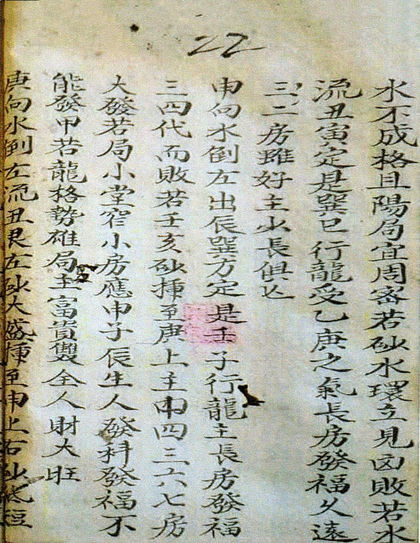 22
水不成格且陽局宜周密若砂水環立見凶敗若水
流丑寅定是巽巳行龍受乙庚之氣長房發福久遠
三二房雖好主少長俱
申向水倒左出辰巽方定是壬子行龍主長房發福
三四代而敗若壬亥砂揷至庚上主申四三六七房
大發若局小堂窄小房應申子辰生人發科發福不
能發甲若龍格勢雄局主富貴雙全人財大旺
庚向水倒左流丑艮左砂大盛揷至申上右砂低